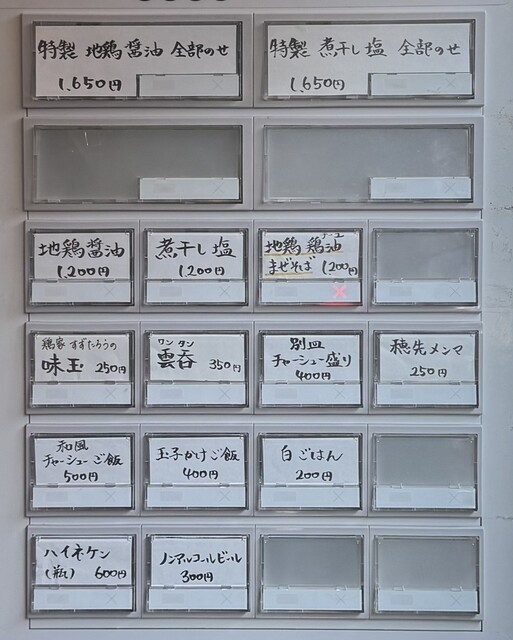 特製 地鶏醤油 全部のせ
1,650円
特製 煮干し塩 全部のせ
1,650円
地鶏醤油
1,200円
煮干し塩
1,200円
地鶏 鶏油
まぜそば 1,200円
鶏家 すずたろうの
味玉 250円
ワンタン
雲呑 350円
別皿
チャーシュー盛り
400円
穂先メンマ
250円
和風
チャーシューご飯
500円
玉子かけご飯
400円
白ごはん
200円
ハイネケン
(瓶) 600円
ノンアルコールビール
300円